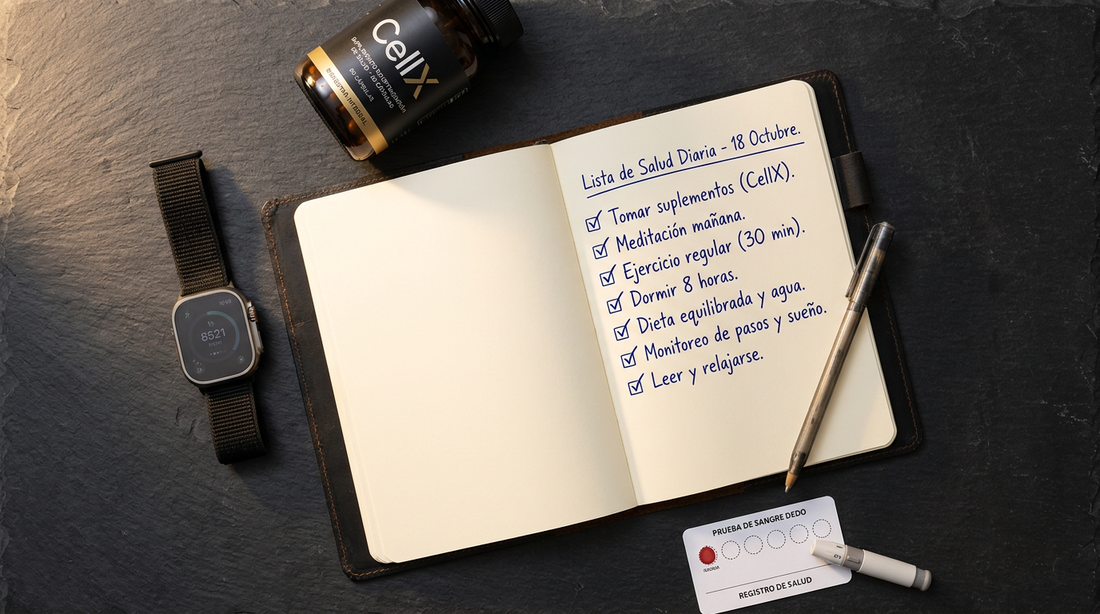 CellX
Lista de Salud Diaria - 18 Octubre.
Tomar suplementos (CellX).
Meditación mañana.
Ejercicio regular (30 min).
Dormir 8 horas.
Dieta equilibrada y agua.
Monitoreo de pasos y sueño.
Leer y relajarse.
8521
PRUEBA DE SANGRE DEDO
REGISTRO DE SALUD